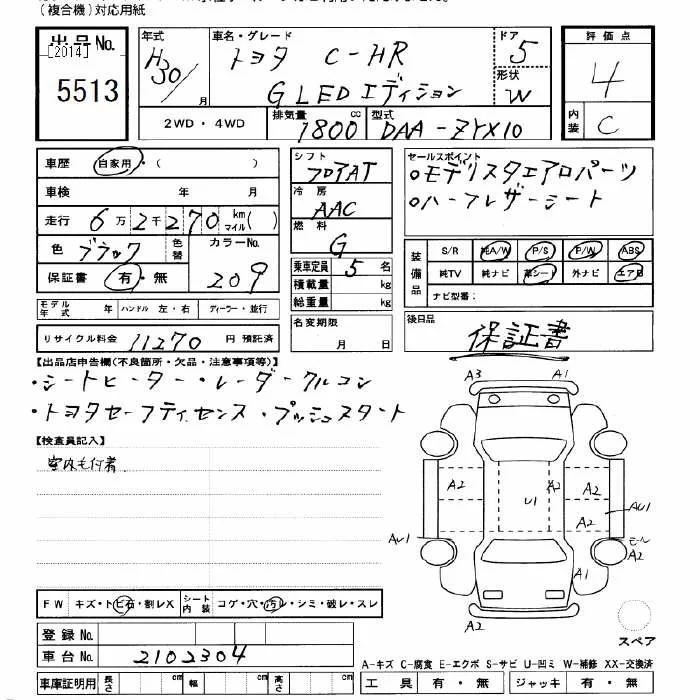 (複合機)対応用紙
出品No. [2014] 5513
年式 H30/ 月
車名・グレード トヨタ C-HR
G LED エディション
ドア 5
形状 W
評価点 4
内装 C
2WD・4WD 排気量 1800 cc 型式 DAA-ZYX10
車歴 自家用・( )
車検 年 月
走行 6万2千270 km マイル( )
色 ブラック 色替 カラーNo. 209
保証書 有・無
モデル年式 年 ハンドル 左・右 ディーラー・並行
リサイクル料金 11270 円 預託済
シフト フロアAT
冷房 AAC
燃料 G
乗車定員 5 名
積載量 kg
総重量 kg
名変期限 月 日
セールスポイント
○モデリスタエアロパーツ
○ハーフレザーシート
装備品 S/R 純A/W P/S P/W ABS
純TV 純ナビ 革シート 外ナビ エアB
ナビ型番:
後日品 保証書
【出品店申告欄(不良箇所・欠品・注意事項等)】
・シートヒーター・レーダークルコン
・トヨタセーフティセンス・プッシュスタート
【検査員記入】
室内毛付着
A3 A1
A2 U1 A2 A2
A2 AU1
AU1 モール A2
A1
A2
スペア
FW キズ・トビ石・割レX シート内装 コゲ・穴・汚レ・シミ・破レ・スレ
登録No.
車台No. 2102304
車庫証明用 長さ cm 幅 cm 高さ cm
A-キズ C-腐食 E-エクボ S-サビ U-凹ミ W-補修 XX-交換済
工具 有・無 ジャッキ 有・無